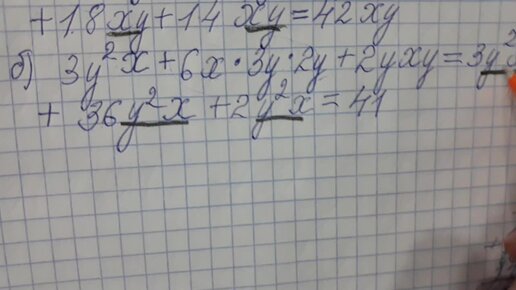 + 18xy + 14xy = 42xy
б) 3y²x + 6x·3y·2y + 2yxy = 3y²
+ 36y²x + 2y²x = 41